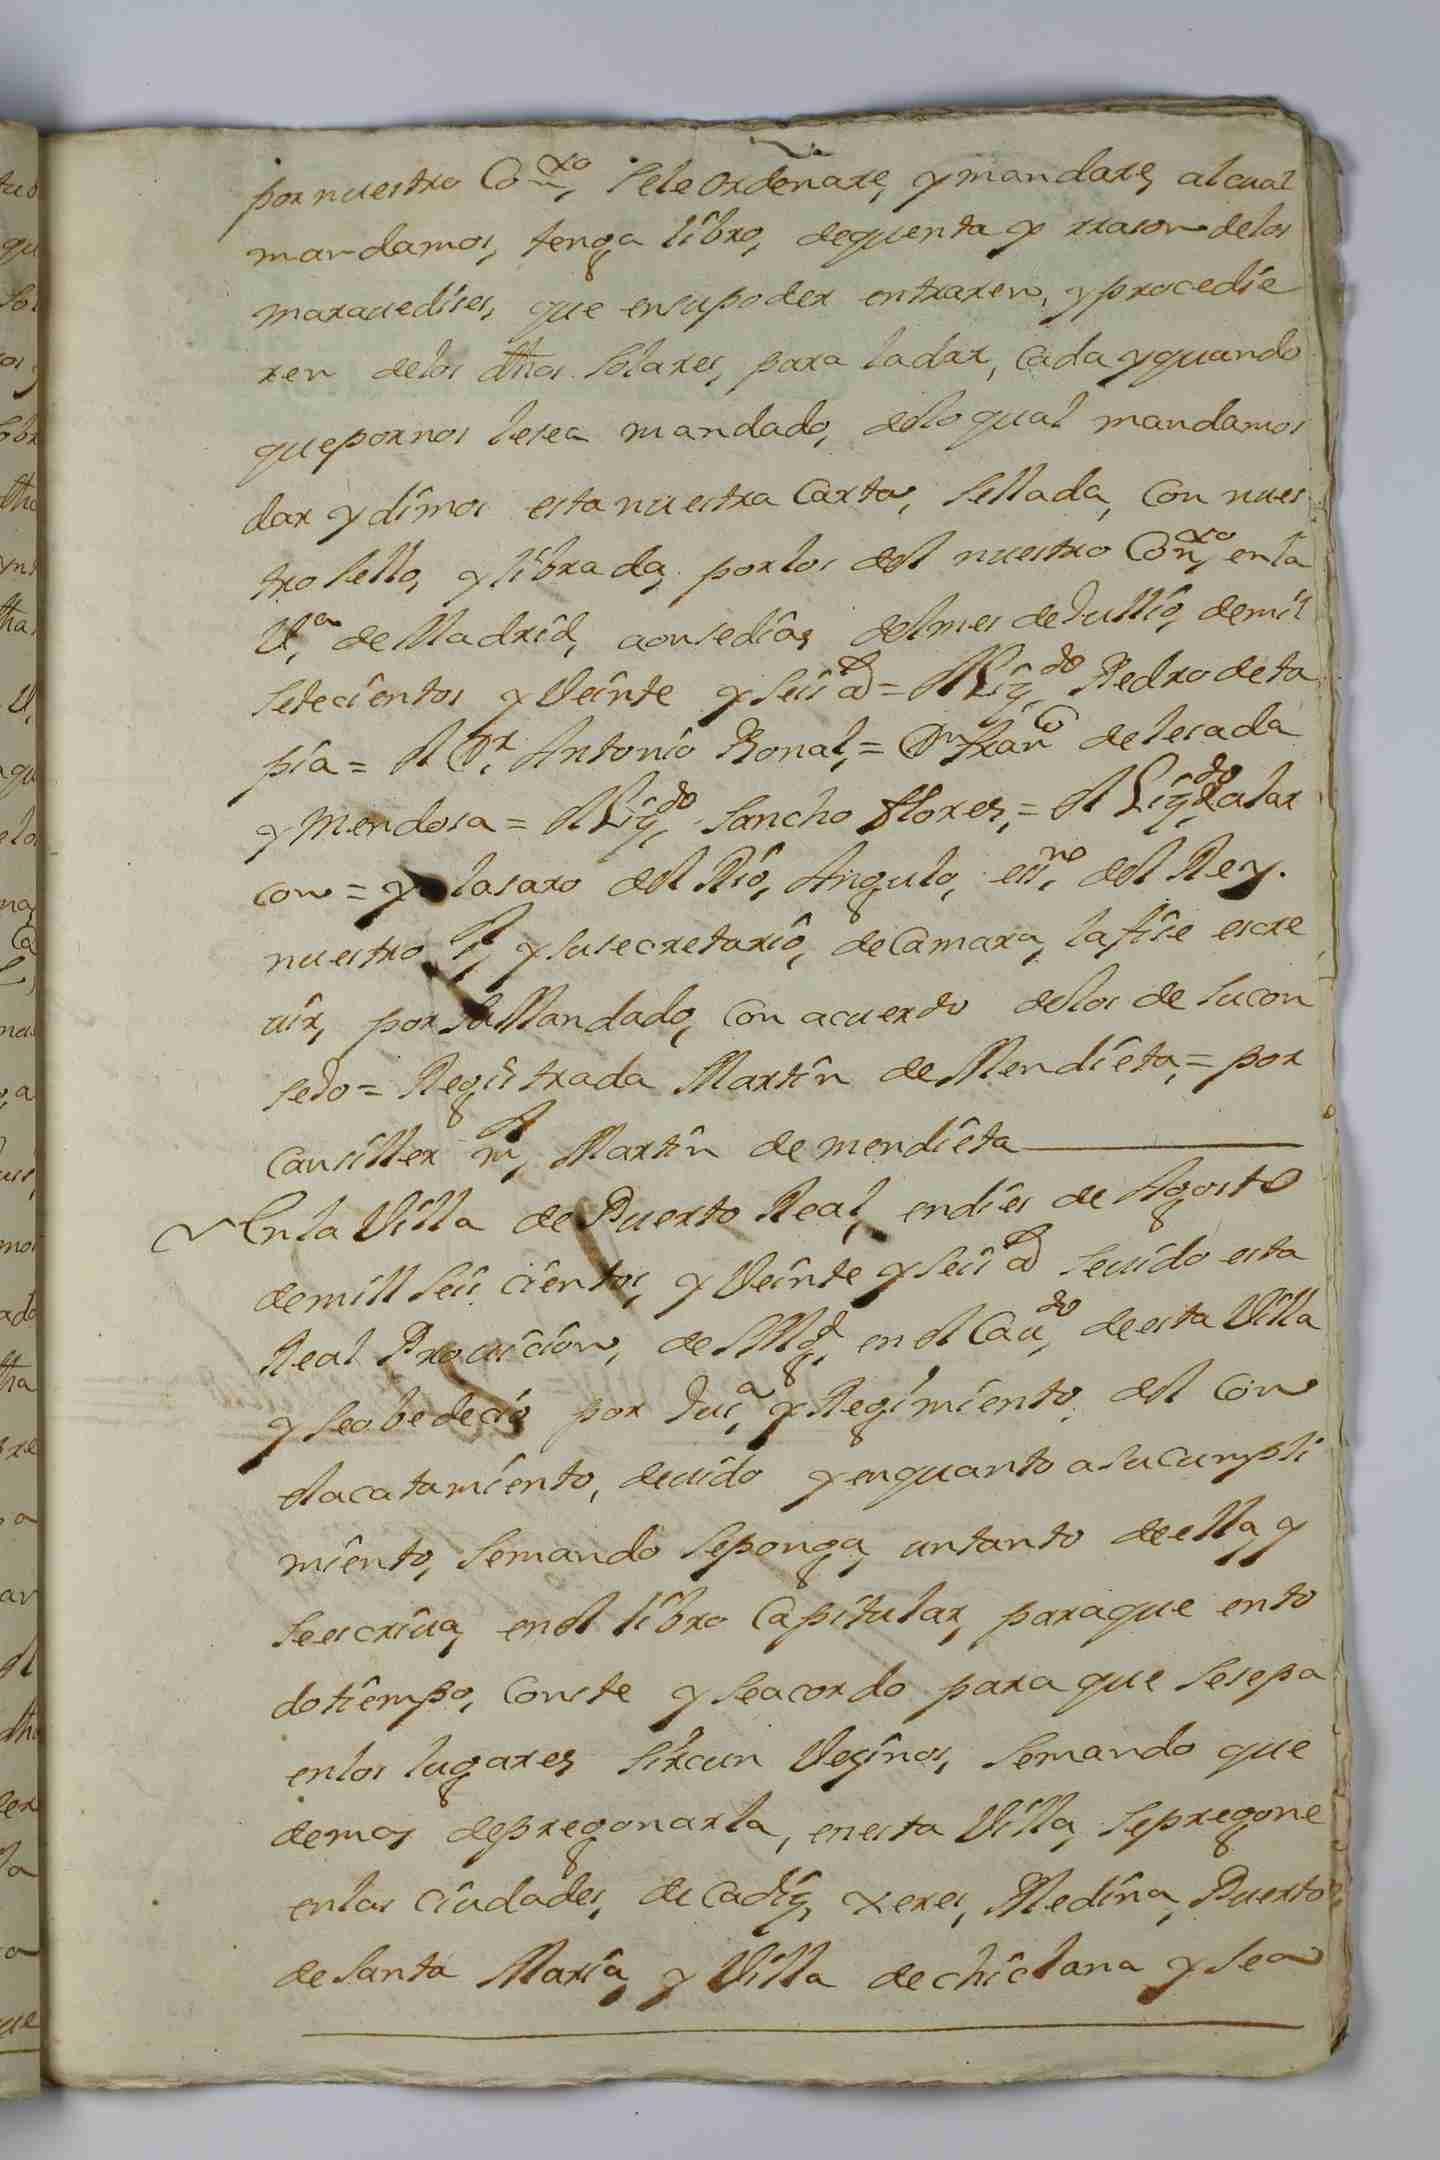 por nuestro Con.xo sele ordenare, y mandare, al cual
mandamos, tenga libro, de quenta y rrason de los
marauedises, que en su poder entraren, y procedie
ren de los dhos. solares, para la dar, cada y quando
que por nos le sea mandado, de lo qual mandamos
dar y dimos esta nuestra Carta, sellada, con nues
tro sello, y librada, por los del nuestro Con.xo en la
V.a de Madrid, a onse dias, del mes de Jullio, de mil
setecientos y Veinte y seis a.s = el Liz.do Pedro de ta
pia = el D.r Antonio Bonal, = D.n Fran.co de tesada
y Mendosa = el Liz.do Sancho flores, = el Liz.do alar
con = yo lasaro del Rio, Angulo, ess.no del Rey.
nuestro S.r y su secretario, de Camara, la fise escre
uir, por su Mandado, con acuerdo de los de su con
sejo = Registrada Martin de Mendieta, = por
Cansiller m.r Martin de mendieta
En la Villa de Puerto Real, en dies de Agosto
de mill seis cientos, y Veinte y seis a.s se uido esta
Real Prouision, de su Mg.d en el Cau.do de esta Villa
y se obedecio por Jus.a y Regimiento, del con
el acatamiento, deuido y en quanto a su cumpli
miento, se mando se ponga, un tanto de ella, y
se escriua, en el libro Capitular, para que en to
do tiempo, conste y se acordo para que se sepa
en los lugares sircun Vesinos, se mando que
demas de pregonarla, en esta Villa, se pregone
en las ciudades, de Cadiz, xeres, Medina, Puerto
de Santa Maria, y Villa de chiclana y sea